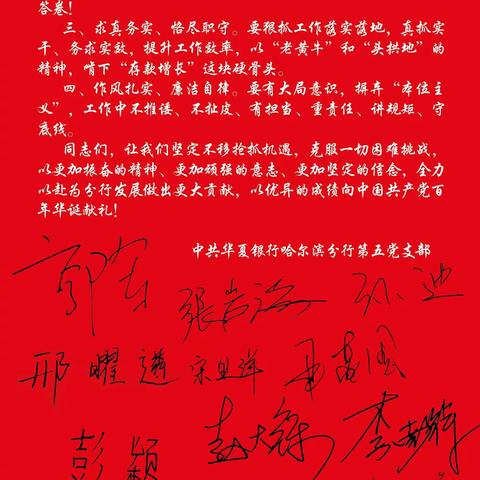 答卷!
三、求真务实、恪尽职守。要狠抓工作落实落地，真抓实
干、务求实效，提升工作效率，以“老黄牛”和“头拱地”的
精神，啃下“存款增长”这块硬骨头。
四、作风扎实、廉洁自律。要有大局意识，摒弃“本位主
义”，工作中不推诿、不扯皮、有担当、重责任、讲规矩、守
底线。
同志们，让我们坚定不移抢抓机遇，克服一切困难挑战，
以更加振奋的精神、更加顽强的意志、更加坚定的信念，全力
以赴为分行发展做出更大贡献，以优异的成绩向中国共产党百
年华诞献礼!
中共华夏银行哈尔滨分行第五党支部
邢曜
彭颖